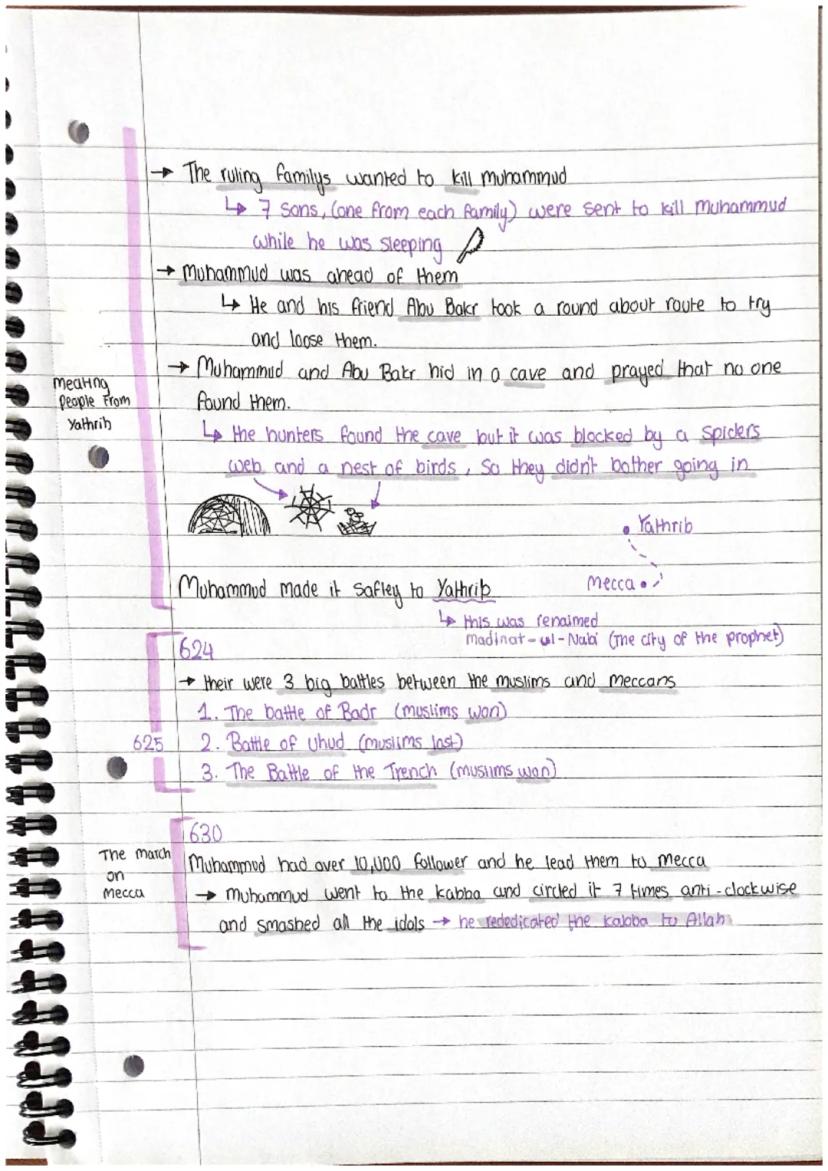 → The ruling familys wanted to kill muhammud
↳ 7 sons, (one from each family) were sent to kill Muhammud
while he was sleeping
→ Muhammud was ahead of them
↳ He and his friend Abu Bakr took a round about route to try
and loose them.
→ Muhammud and Abu Bakr hid in a cave and prayed that no one
found them.
Meating
People from
Yathrib
↳ the hunters found the cave but it was blocked by a spiders
web and a nest of birds, so they didn't bother going in
Yathrib
Mecca
Muhammud made it safley to Yathrib
↳ this was renaimed
Madinat-ul-Nabi (The city of the prophet)
624
→ their were 3 big battles between the muslims and meccans
1. The battle of Badr (muslims won)
625 2. Battle of Uhud (muslims lost)
3. The Battle of the Trench (muslims won)
630
The march
on
Mecca
Muhammud had over 10,000 follower and he lead them to Mecca
→ Muhammud went to the kabba and circled it 7 times anti-clockwise
and smashed all the idols → he rededicated the kabba to Allah